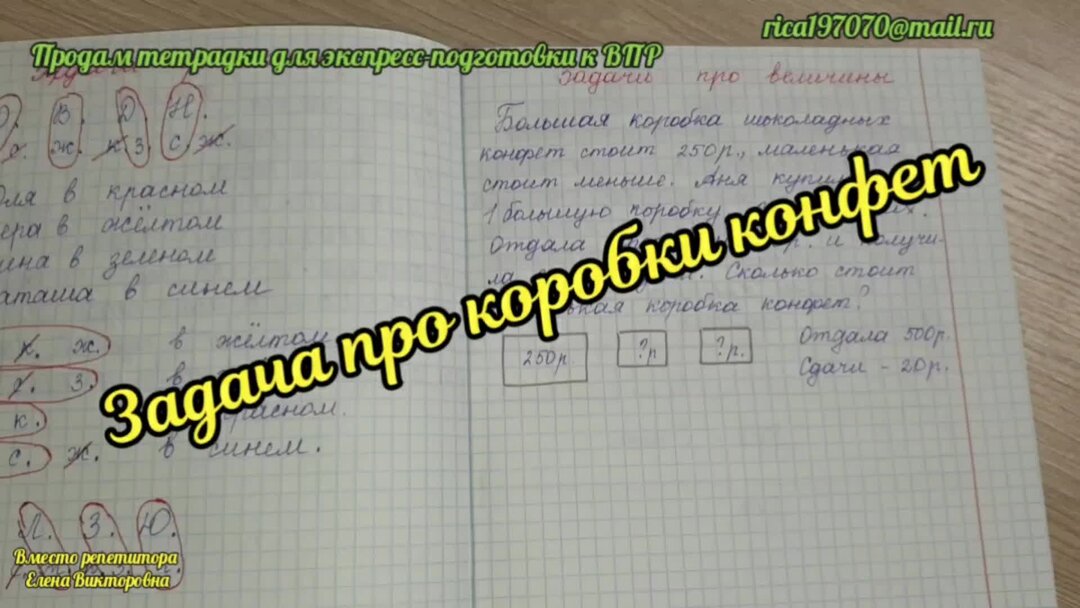 Продам тетрадки для экспресс-подготовки к ВПР
rica197070@mail.ru
О. В. Д. Н.
ж. к з. с. ж.
в красном
в жёлтом
в зеленом
в синем
ж. в жёлтом
з. в
к. красном.
с. ж. в синем.
Л. З. Ю.
задачи про величины
Большая коробка шоколадных
конфет стоит 250р., маленькая
стоит меньше. Аня
1 большую коробку
Отдала р. и получи-
ла Сколько стоит
коробка конфет?
250р. ?р ?р.
Отдала 500р.
Сдачи - 20р.
Задача про коробки конфет
Вместо репетитора
Елена Викторовна